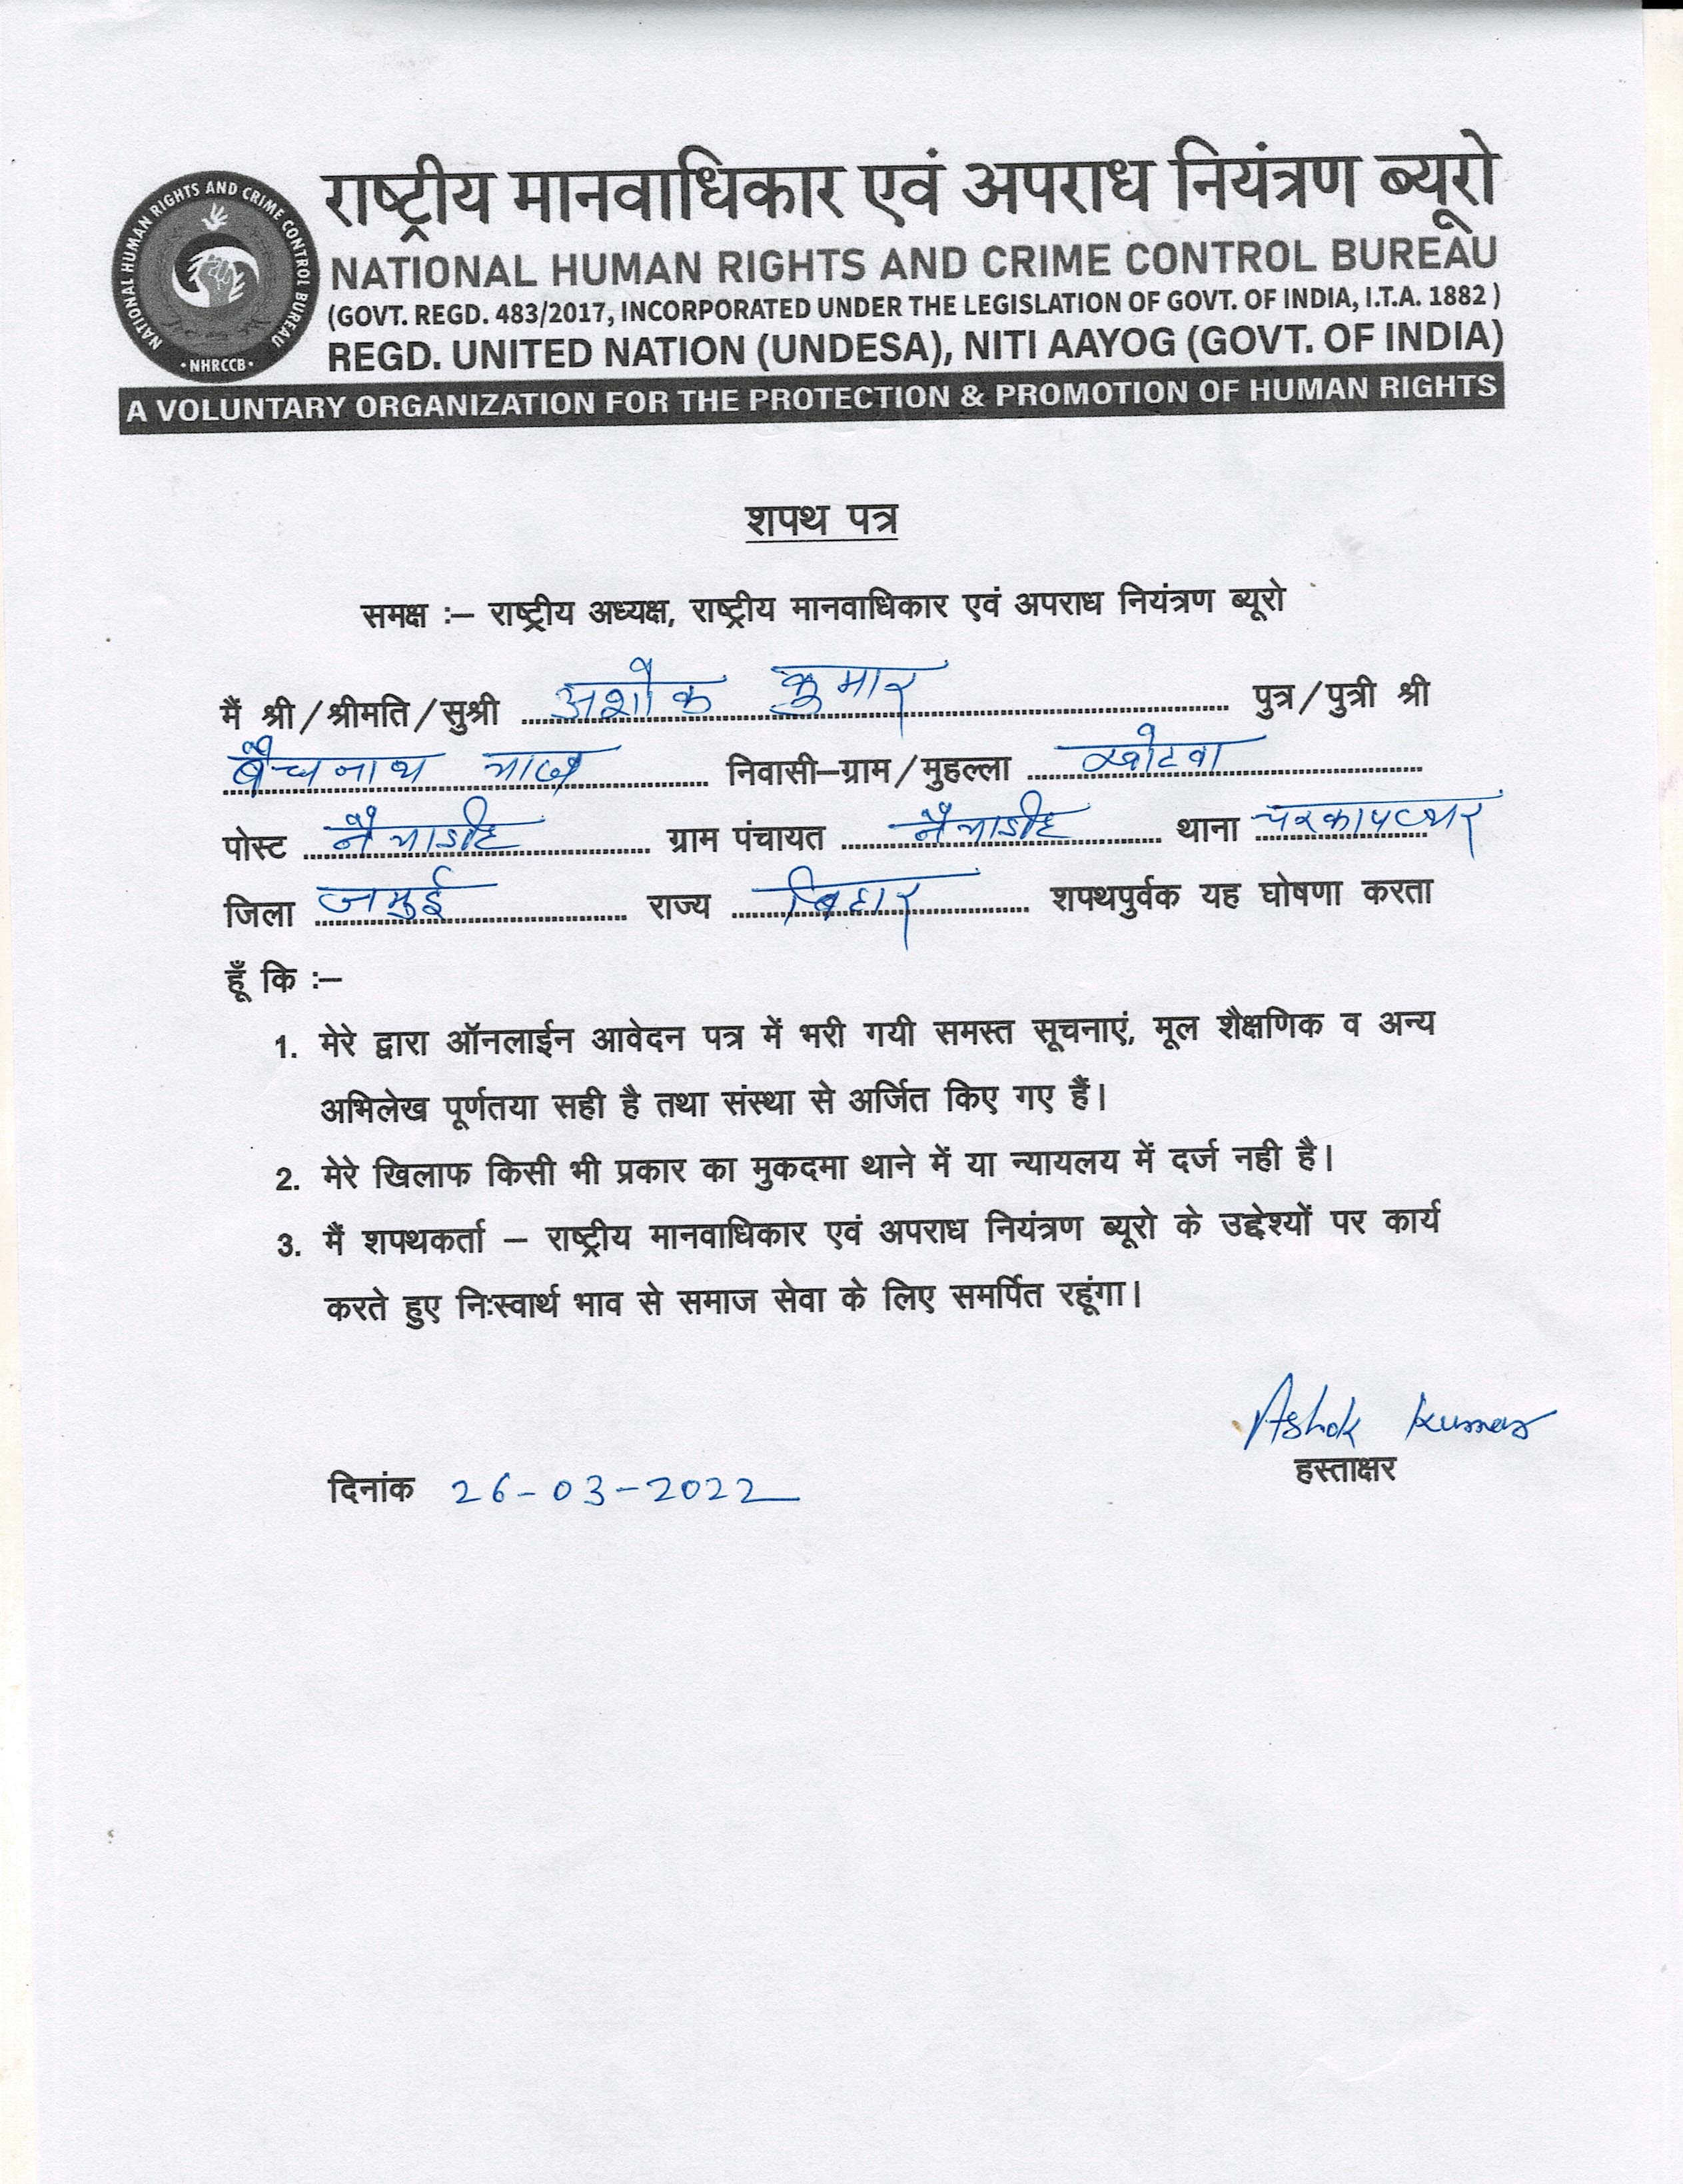 राष्ट्रीय मानवाधिकार एवं अपराध नियंत्रण ब्यूरो
NATIONAL HUMAN RIGHTS AND CRIME CONTROL BUREAU
NATIONAL HUMAN RIGHTS AND CRIME CONTROL BUREAU
• NHRCCB •
(GOVT. REGD. 483/2017, INCORPORATED UNDER THE LEGISLATION OF GOVT. OF INDIA, I.T.A. 1882 )
REGD. UNITED NATION (UNDESA), NITI AAYOG (GOVT. OF INDIA)
A VOLUNTARY ORGANIZATION FOR THE PROTECTION & PROMOTION OF HUMAN RIGHTS
शपथ पत्र
समक्ष :– राष्ट्रीय अध्यक्ष, राष्ट्रीय मानवाधिकार एवं अपराध नियंत्रण ब्यूरो
मैं श्री/श्रीमति/सुश्री अशोक कुमार पुत्र/पुत्री श्री
निवासी–ग्राम/मुहल्ला खोटवा
पोस्ट नैयाडीह ग्राम पंचायत नैयाडीह थाना चरकापत्थर
जिला जमुई राज्य बिहार शपथपुर्वक यह घोषणा करता
हूँ कि :–
1. मेरे द्वारा ऑनलाईन आवेदन पत्र में भरी गयी समस्त सूचनाएं, मूल शैक्षणिक व अन्य
अभिलेख पूर्णतया सही है तथा संस्था से अर्जित किए गए हैं।
2. मेरे खिलाफ किसी भी प्रकार का मुकदमा थाने में या न्यायलय में दर्ज नही है।
3. मैं शपथकर्ता – राष्ट्रीय मानवाधिकार एवं अपराध नियंत्रण ब्यूरो के उद्देश्यों पर कार्य
करते हुए निःस्वार्थ भाव से समाज सेवा के लिए समर्पित रहूंगा।
Ashok Kumar
हस्ताक्षर
दिनांक 26-03-2022